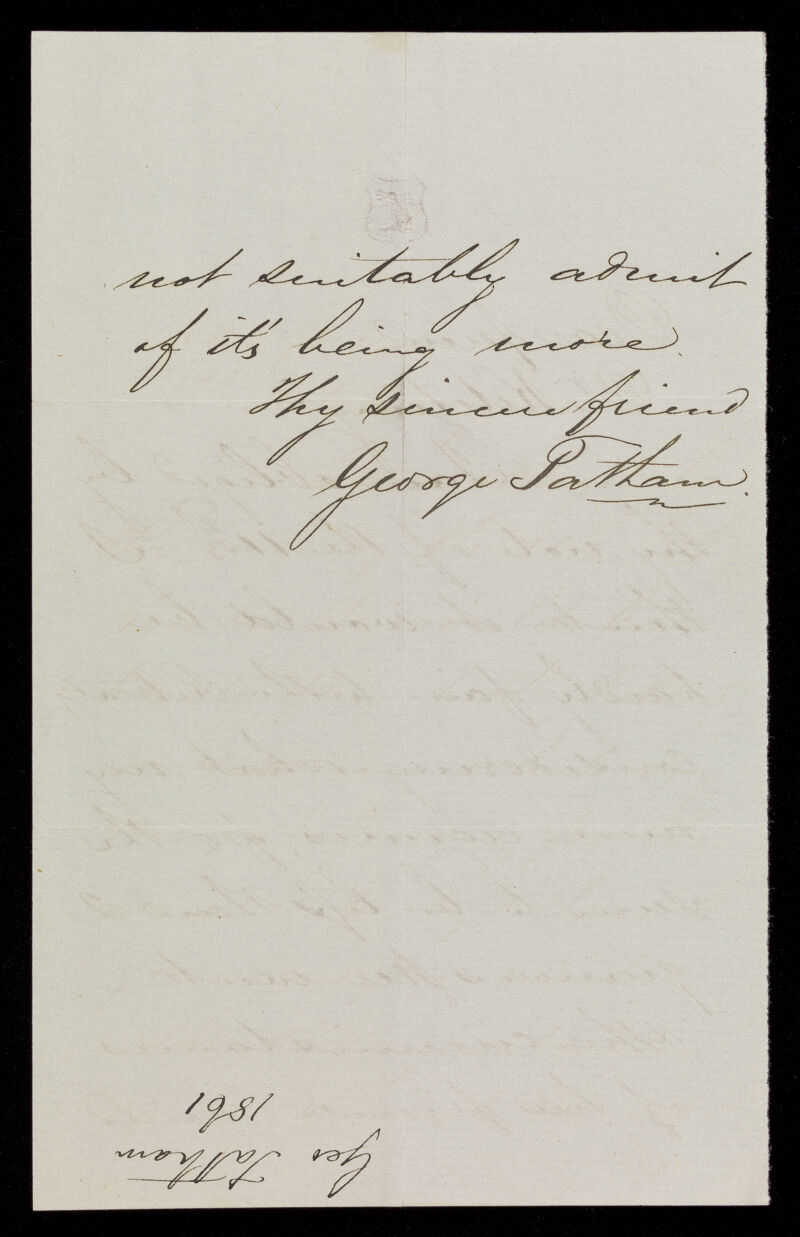 not suitably admit
of it's being more.
Thy sincere friend
George Tatham.
Geo Tatham
1861